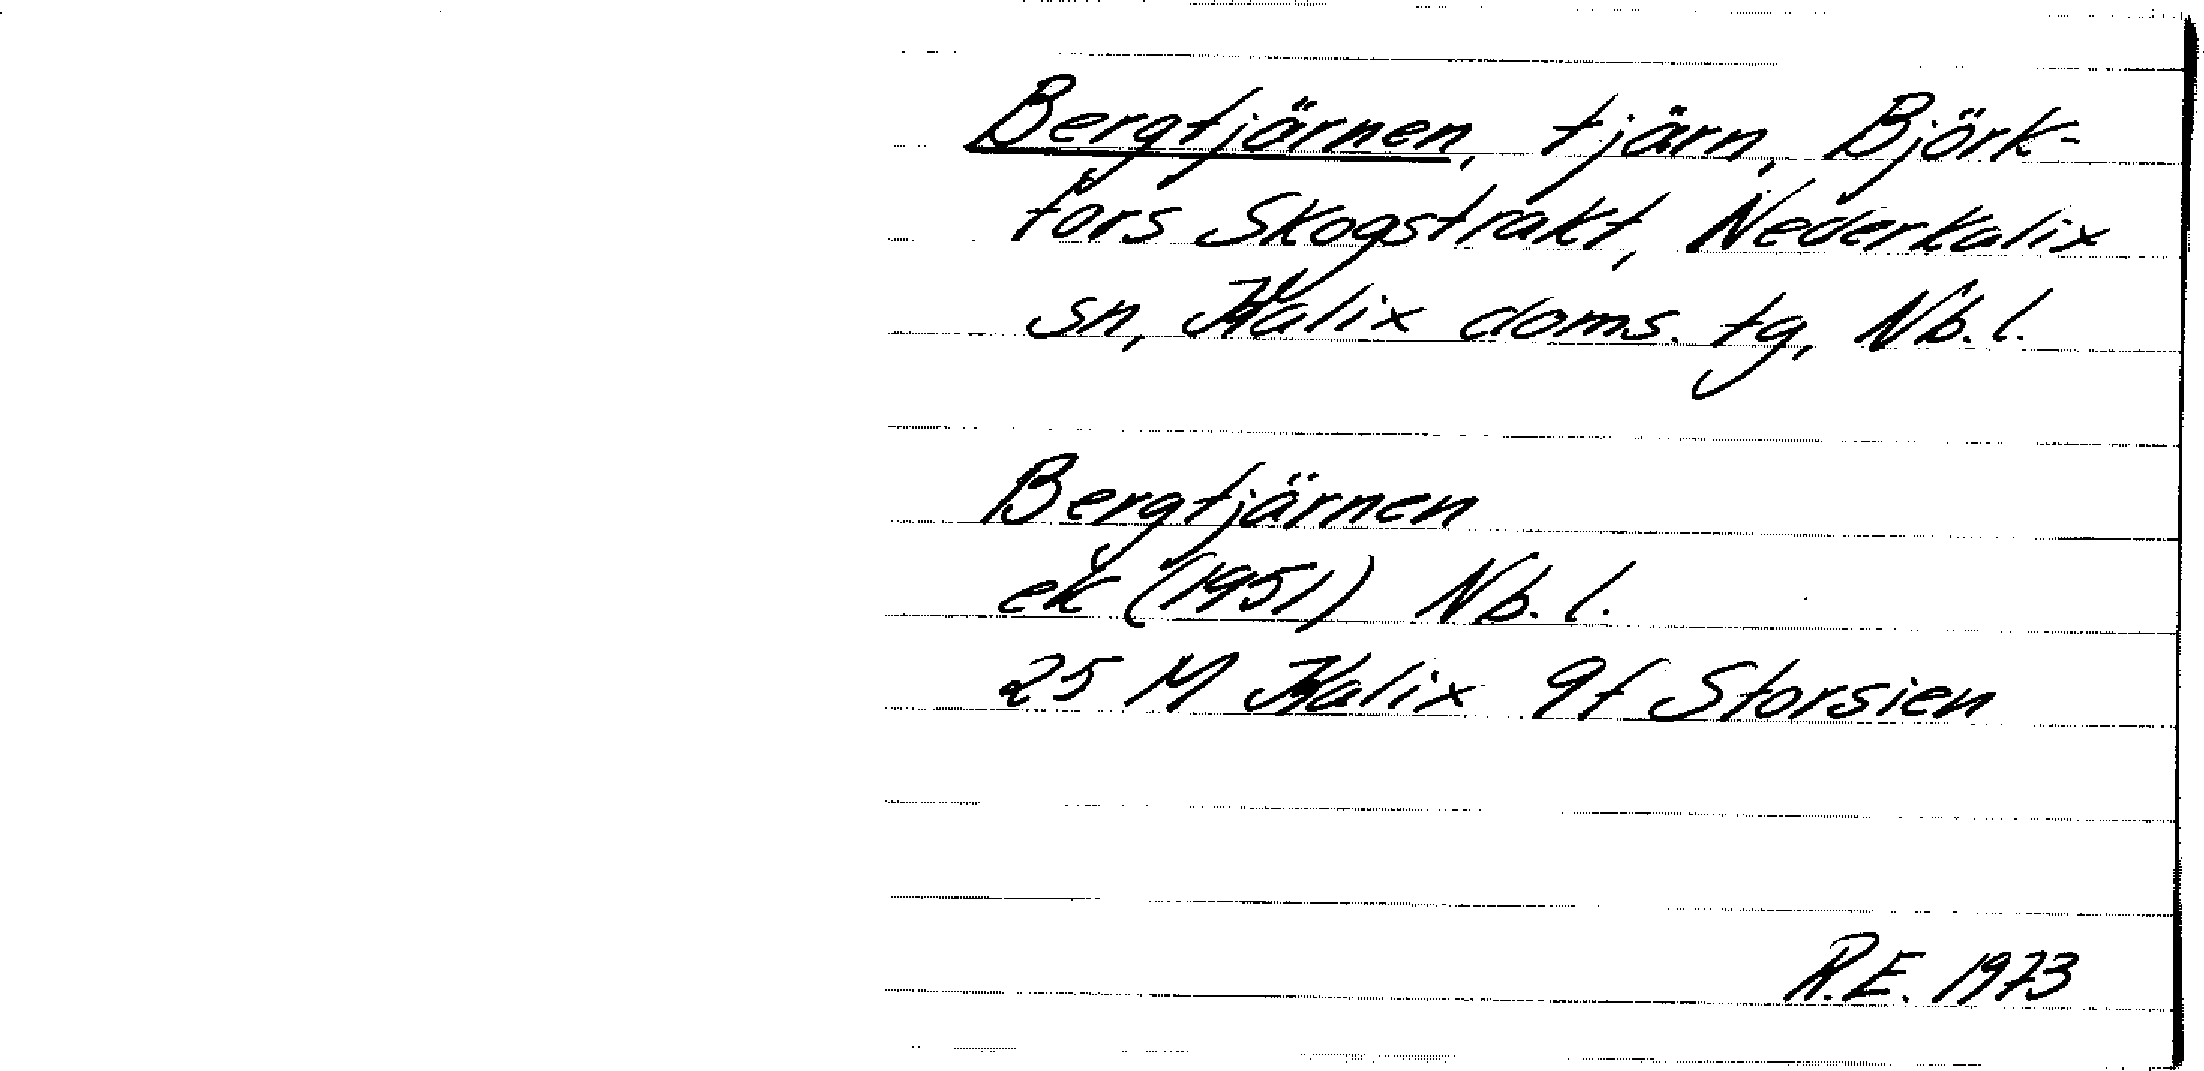 Bergtjärnen, tjärn, Björk-
fors Skogstrakt, Nederkalix
sn, Kalix doms. tg, Nb. l.
Bergtjärnen
ek (1951) Nb. l.
25 M Kalix 9f Storsien
R.E. 1973